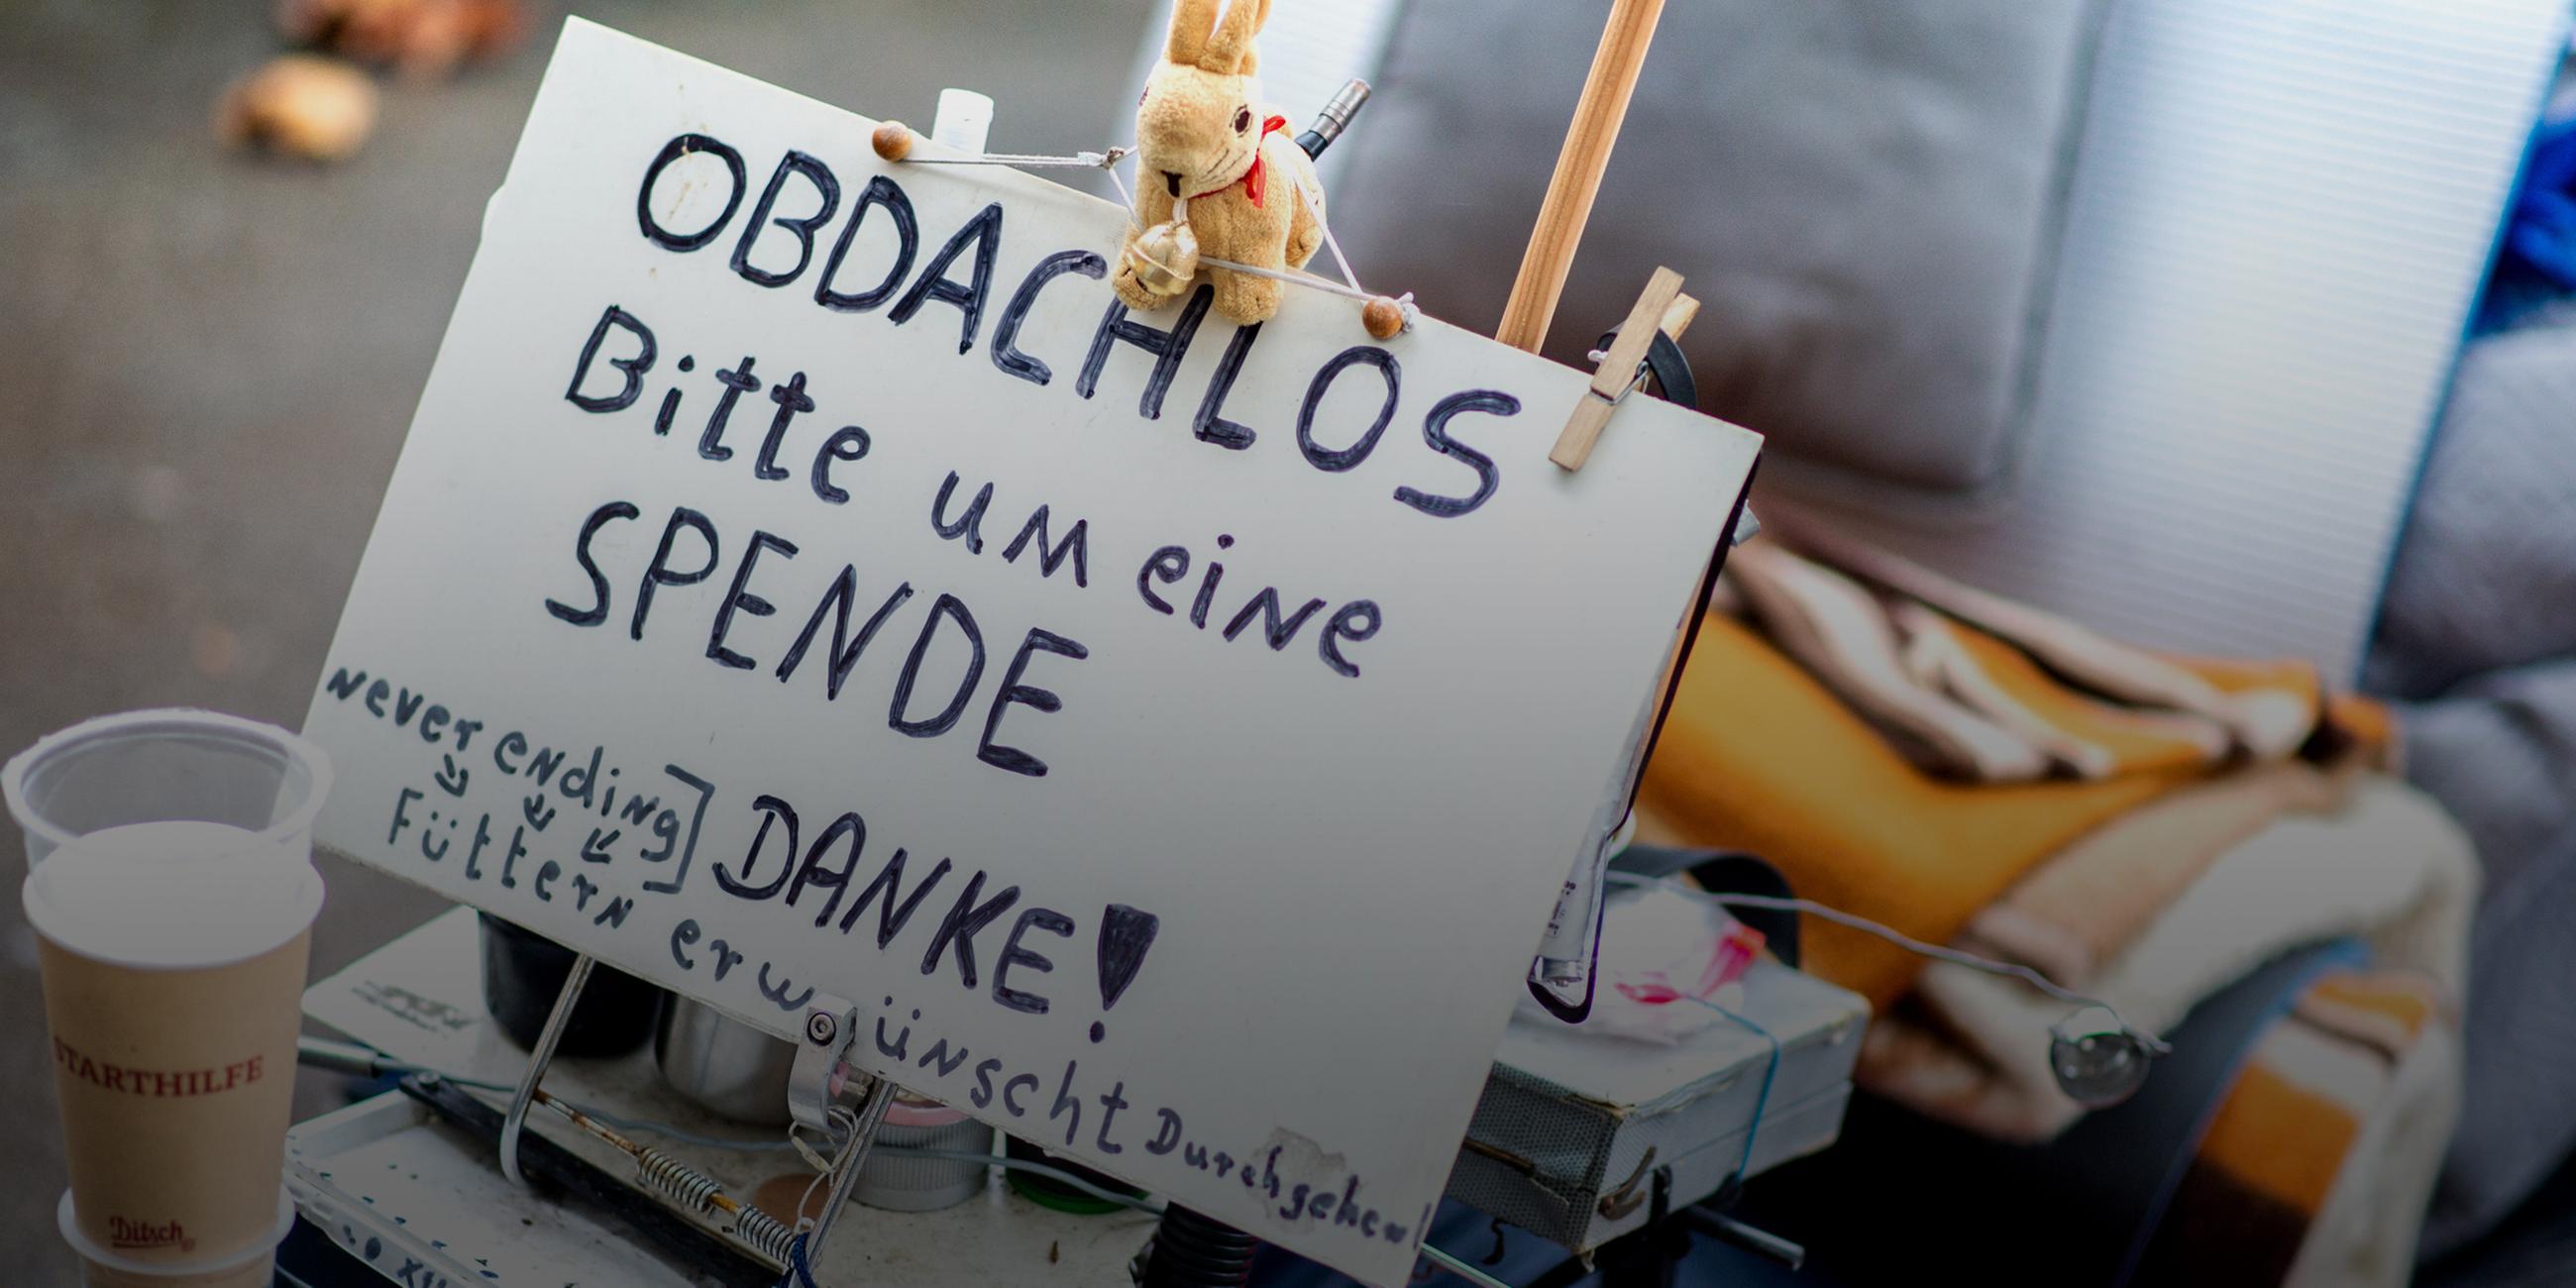 OBDACHLOS
Bitte um eine
SPENDE
never ending] DANKE!
Füttern erwünscht Durchgehend
STARTHILFE
Ditsch